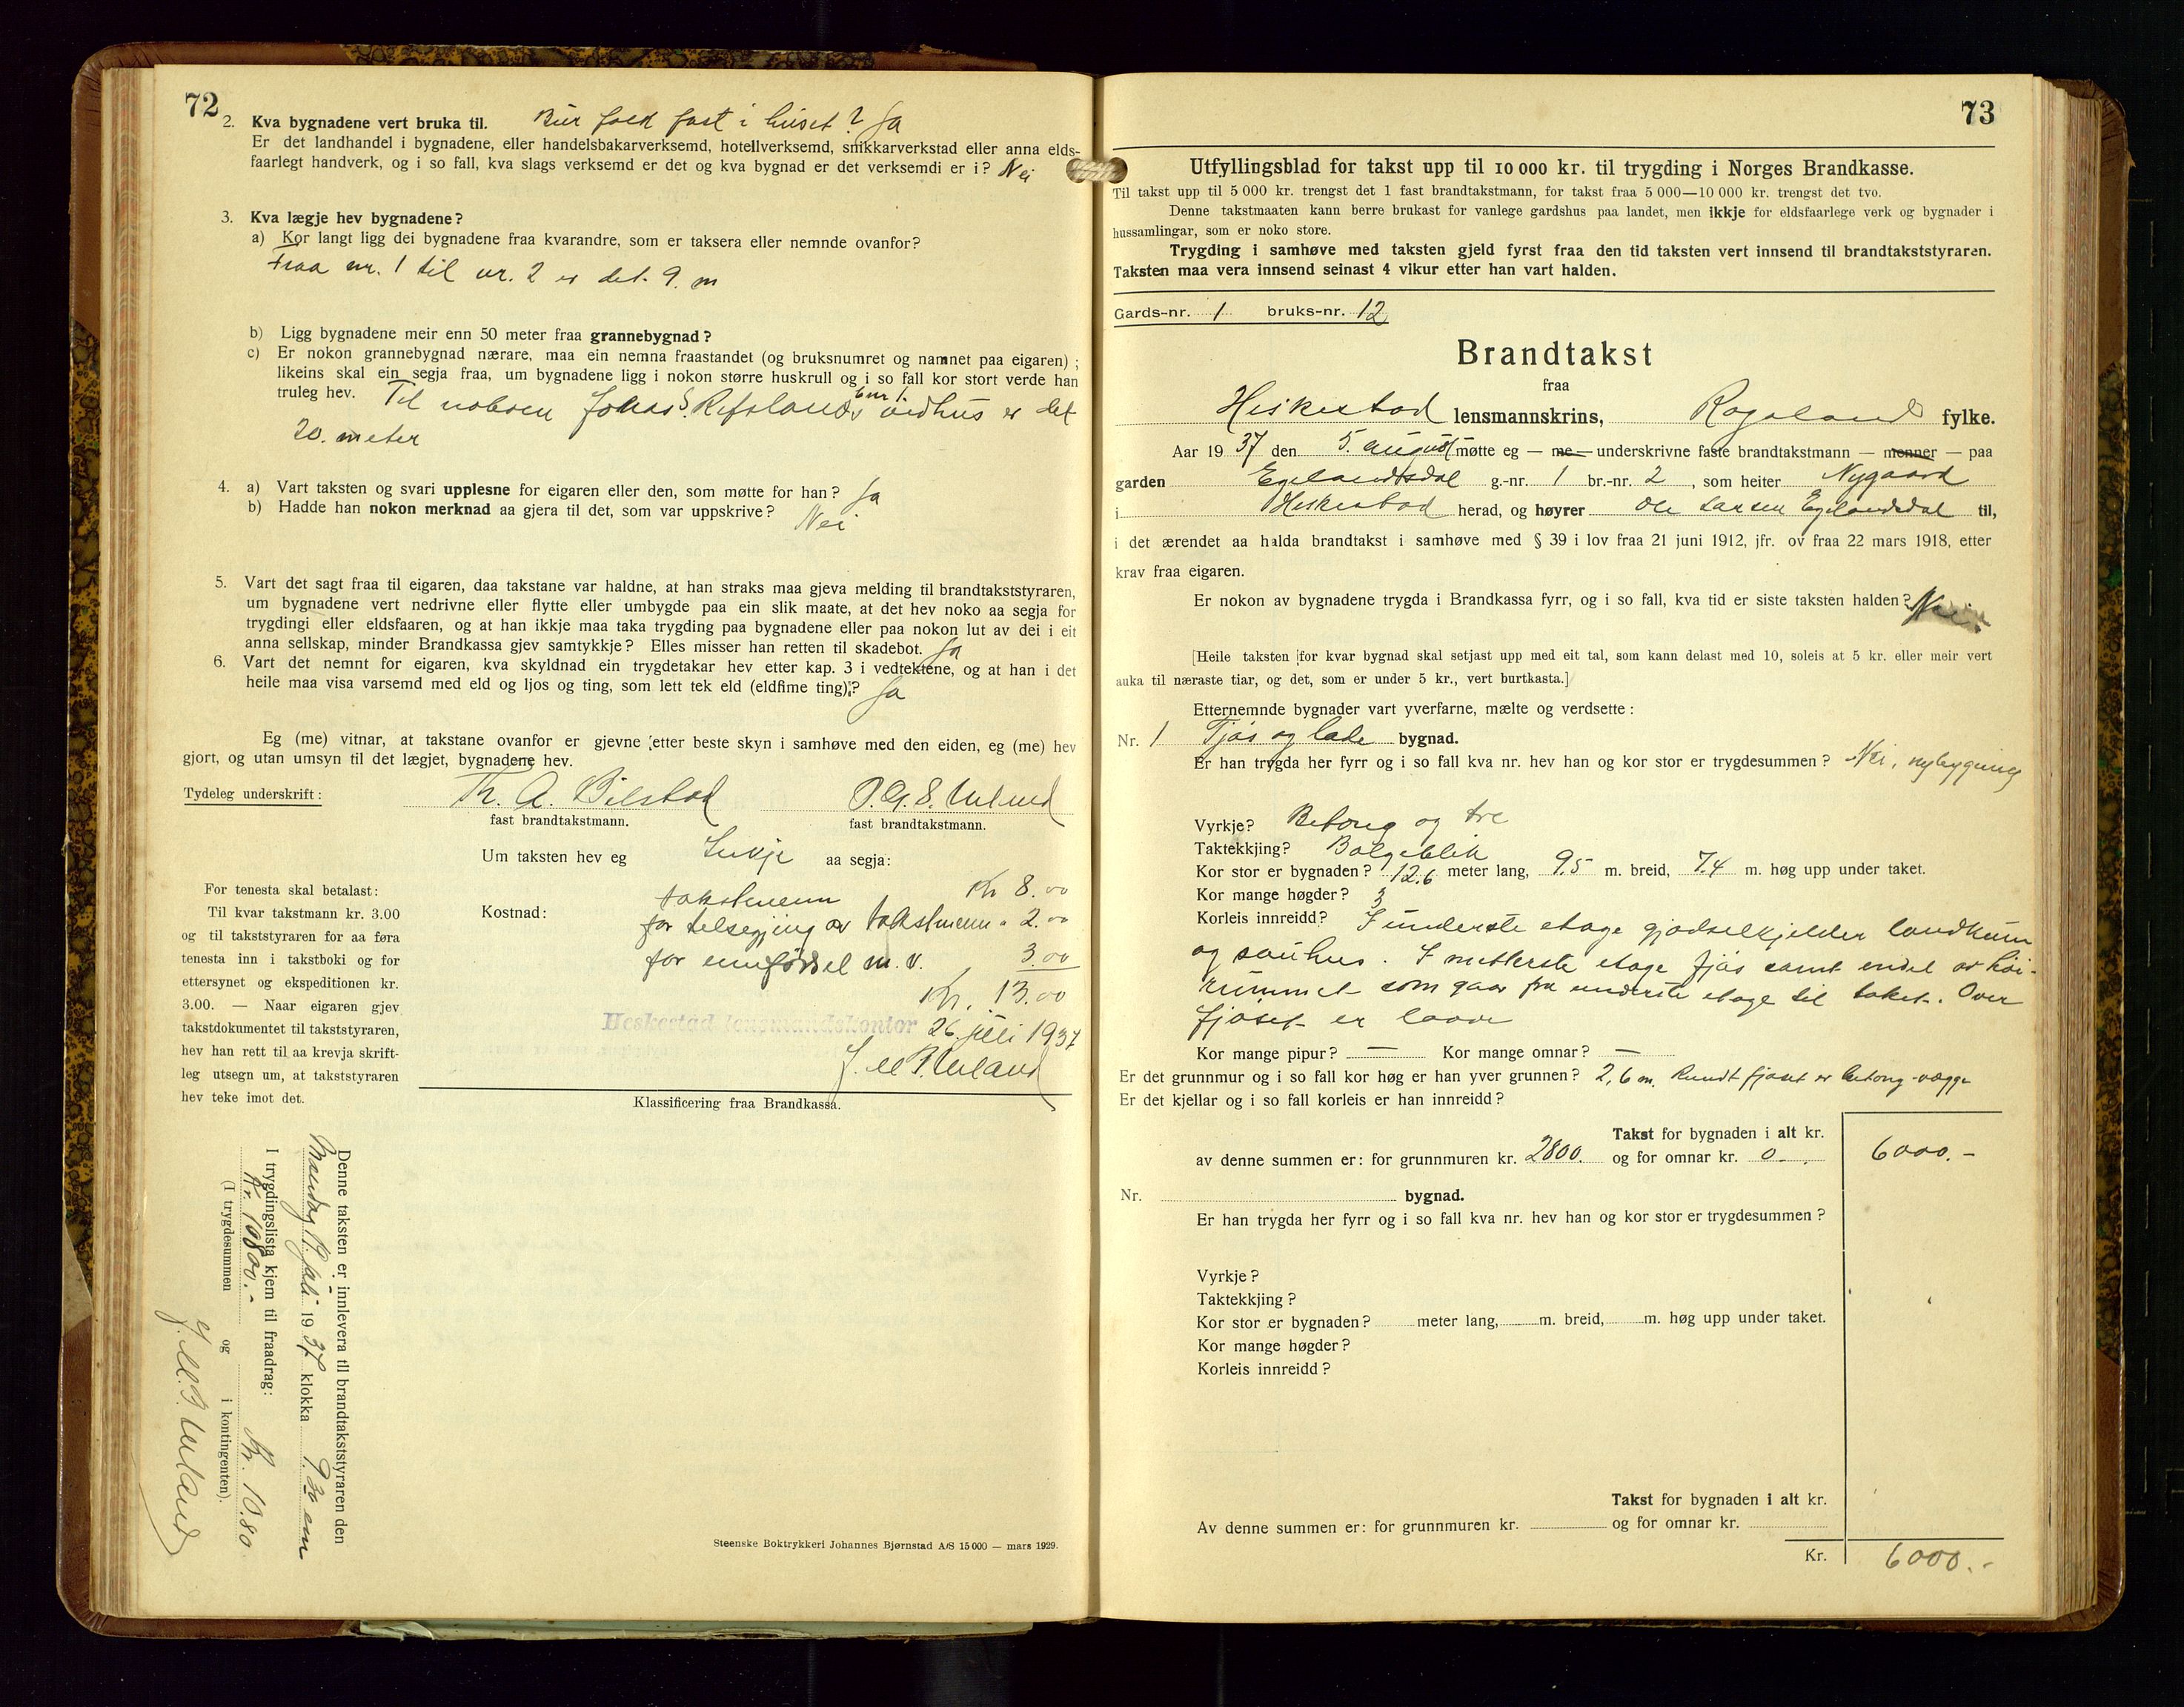 72
2. Kva bygnadene vert bruka til. Bur folk fast i huset? Ja
Er det landhandel i bygnadene, eller handelsbakarverksemd, hotellverksemd, snikkarverkstad eller anna elds-
faarlegt handverk, og i so fall, kva slags verksemd er det og kva bygnad er det verksemdi er i? Nei
3. Kva lægje hev bygnadene?
a) Kor langt ligg dei bygnadene fraa kvarandre, som er taksera eller nemnde ovanfor?
Fraa nr. 1 til nr. 2 er det 9. m
b) Ligg bygnadene meir enn 50 meter fraa grannebygnad?
c) Er nokon grannebygnad nærare, maa ein nemna fraastandet (og bruksnumret og namnet paa eigaren);
likeins skal ein segja fraa, um bygnadene ligg i nokon større huskrull og i so fall kor stort verde han
truleg hev. Til naboen Jonas S. Refslands vedhus er det
20. meter
4. a) Vart taksten og svari upplesne for eigaren eller den, som møtte for han? Ja
b) Hadde han nokon merknad aa gjera til det, som var uppskrive? Nei
5. Vart det sagt fraa til eigaren, daa takstane var haldne, at han straks maa gjeva melding til brandtakststyraren,
um bygnadene vert nedrivne eller flytte eller umbygde paa ein slik maate, at det hev noko aa segja for
trygdingi eller eldsfaaren, og at han ikkje maa taka trygding paa bygnadene eller paa nokon lut av dei i eit
anna sellskap, minder Brandkassa gjev samtykkje? Elles misser han retten til skadebot. Ja
6. Vart det nemnt for eigaren, kva skyldnad ein trygdetakar hev etter kap. 3 i vedtektene, og at han i det
heile maa visa varsemd med eld og ljos og ting, som lett tek eld (eldfime ting)? Ja
Eg (me) vitnar, at takstane ovanfor er gjevne etter beste skyn i samhøve med den eiden, eg (me) hev
gjort, og utan umsyn til det lægjet, bygnadene hev.
Tydeleg underskrift: Th. A. Bilstad
fast brandtakstmann. fast brandtakstmann.
Um taksten hev eg Inkje aa segja:
For tenesta skal betalast:
Til kvar takstmann kr. 3.00
og til takststyraren for aa føra
tenesta inn i takstboki og for
ettersynet og ekspeditionen kr.
3.00. — Naar eigaren gjev
takstdokumentet til takststyraren,
hev han rett til aa krevja skrift-
leg utsegn um, at takststyraren
hev teke imot det.
Kostnad: takstmenn Kr 8.00
for tilsegjing av takstmenn " 2.00
for innførsel m. v. 3.00
Kr. 13.00
Heskestad lensmandskontor 26. juli 1937
Klassificering fraa Brandkassa.
Denne taksten er innlevera til brandtakststyraren den
Maandag 19. juli 1937 klokka 9 30 em
I trygdingslista kjem til fraadrag:
Kr. 10800.- Kr. 10.80
(I trygdesummen og i kontingenten).
Steenske Boktrykkeri Johannes Bjørnstad A/S 15 000 — mars 1929.
73
Utfyllingsblad for takst upp til 10 000 kr. til trygding i Norges Brandkasse.
Til takst upp til 5 000 kr. trengst det 1 fast brandtakstmann, for takst fraa 5 000—10 000 kr. trengst det tvo.
Denne takstmaaten kann berre brukast for vanlege gardshus paa landet, men ikkje for eldsfaarlege verk og bygnader i
hussamlingar, som er noko store.
Trygding i samhøve med taksten gjeld fyrst fraa den tid taksten vert innsend til brandtakststyraren.
Taksten maa vera innsend seinast 4 vikur etter han vart halden.
Gards-nr. 1 bruks-nr. 12
Brandtakst
fraa
Heskestad lensmannskrins, Rogaland fylke.
Aar 1937 den 5. august møtte eg — me — underskrivne faste brandtakstmann — menner — paa
garden Egelandsdal g.-nr. 1 br.-nr. 2, som heiter Nygaard
i Heskestad herad, og høyrer Ole Larsen Egelandsdal til,
i det ærendet aa halda brandtakst i samhøve med § 39 i lov fraa 21 juni 1912, jfr. ov fraa 22 mars 1918, etter
krav fraa eigaren.
Er nokon av bygnadene trygda i Brandkassa fyrr, og i so fall, kva tid er siste taksten halden? Nei.
[Heile taksten for kvar bygnad skal setjast upp med eit tal, som kann delast med 10, soleis at 5 kr. eller meir vert
auka til næraste tiar, og det, som er under 5 kr., vert burtkasta.]
Etternemnde bygnader vart yverfarne, mælte og verdsette:
Nr. 1 Fjøs og lade bygnad.
Er han trygda her fyrr og i so fall kva nr. hev han og kor stor er trygdesummen? Nei, nybygning
Vyrkje? Betong og tre
Taktekkjing? Bølgeblik
Kor stor er bygnaden? 12.6 meter lang, 9.5 m. breid, 7.4 m. høg upp under taket.
Kor mange høgder? 3
Korleis innreidd? I underste etage gjødselkjelder landkum
og sauhus. I mitterste etage fjøs samt endel av høi-
rummet som gaar fra underste etage til taket. Over
fjøset er laave
Kor mange pipur? — Kor mange omnar? —
Er det grunnmur og i so fall kor høg er han yver grunnen? 2,6 m. Rundt fjøset er betong-vægge
Er det kjellar og i so fall korleis er han innreidd?
Takst for bygnaden i alt kr. 6000.-
av denne summen er: for grunnmuren kr. 2800. og for omnar kr. 0
Nr. bygnad.
Er han trygda her fyrr og i so fall kva nr. hev han og kor stor er trygdesummen?
Vyrkje?
Taktekkjing?
Kor stor er bygnaden? meter lang, m. breid, m. høg upp under taket.
Kor mange høgder?
Korleis innreidd?
Takst for bygnaden i alt kr.
Av denne summen er: for grunnmuren kr. og for omnar kr.
Kr. 6000.-